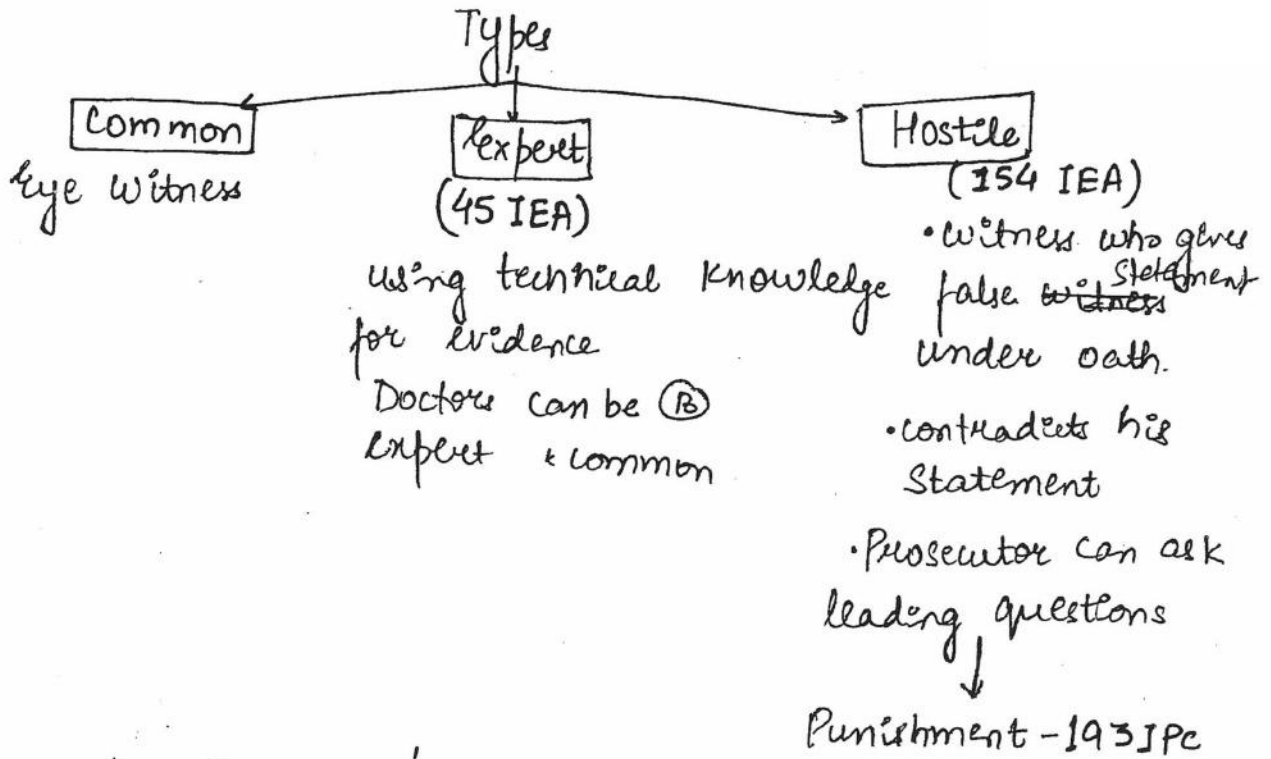 Types
Common
Eye Witness
Expert
(45 IEA)
using technical knowledge
for evidence
Doctors can be Ⓑ
expert & common
Hostile
(154 IEA)
• witness who gives
false witness Statement
under oath.
• contradicts his
Statement
• Prosecutor can ask
leading questions
Punishment - 193 IPC